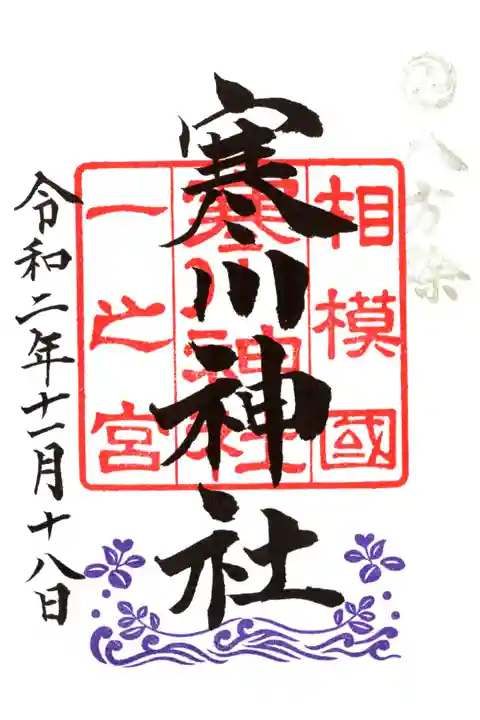 八方除
相模國
寒川神社
一之宮
寒川神社
令和二年十一月十八日